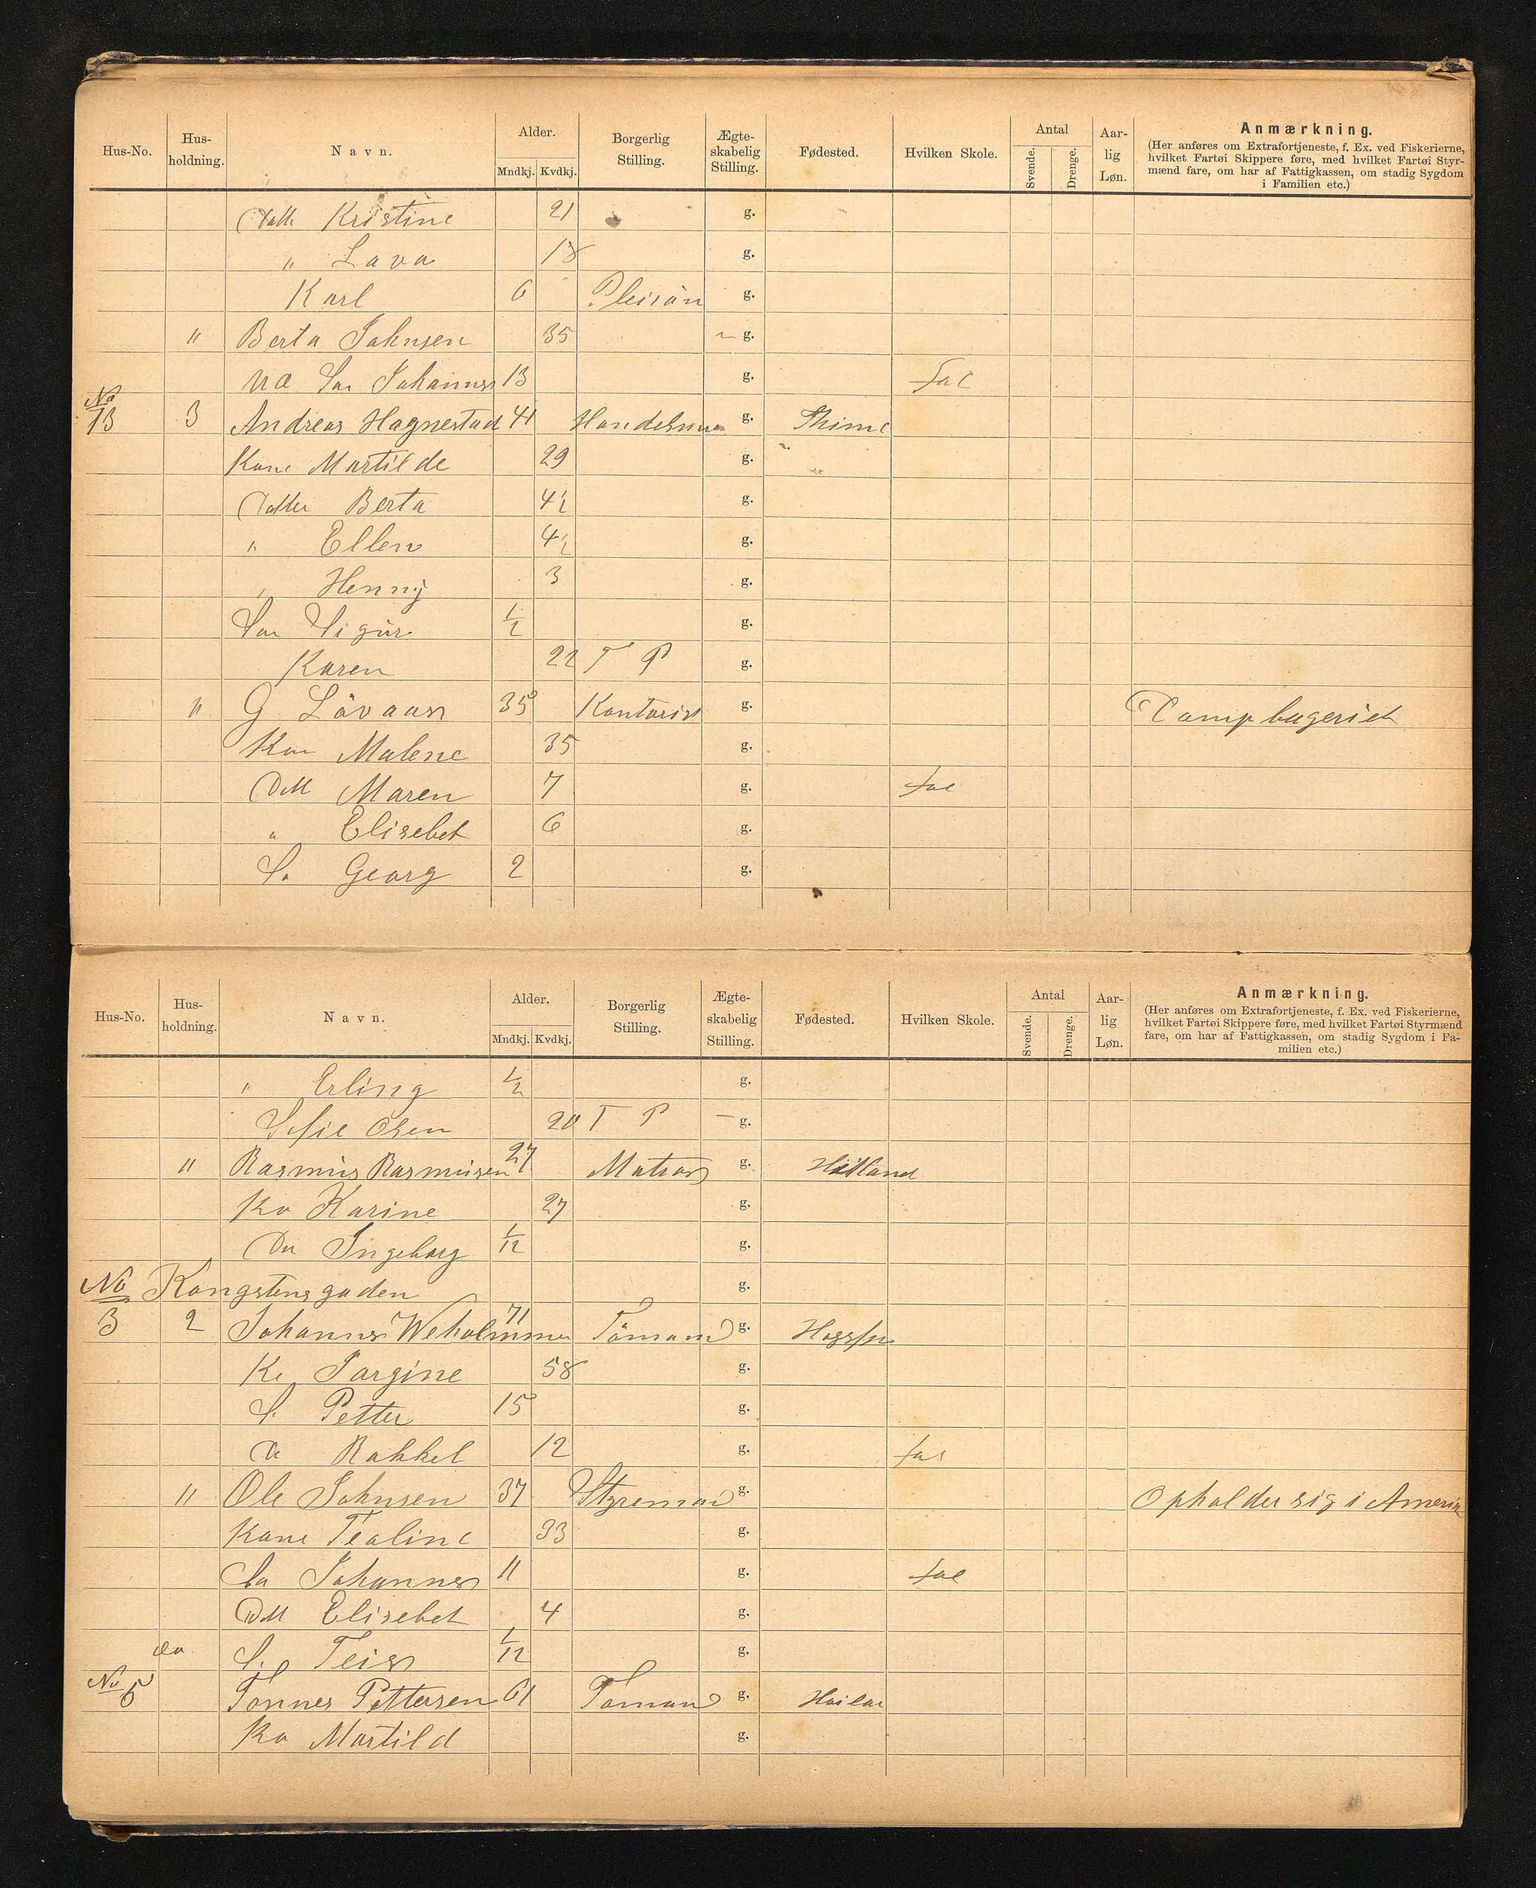 Hus-No. Hus-holdning. Navn. Alder. Mndkj. Kvdkj. Borgerlig Stilling. Ægte-skabelig Stilling. Fødested. Hvilken Skole. Antal Svende. Drenge. Aar-lig Løn. Anmærkning.
(Her anføres om Extrafortjeneste, f. Ex. ved Fiskerierne,
hvilket Fartøi Skippere føre, med hvilket Fartøi Styr-
mænd fare, om har af Fattigkassen, om stadig Sygdom
i Familien etc.)
Datt Kristine 21 g.
" Lava 18 g.
Karl 6 Pleisön g.
" Berta Johnsen 35 g.
Sön Johannes 13 g. fol
No 13 3 Andreas Hagnestad 41 g. Thime
Kone Martilde 29 g.
Datter Berta 4½ g.
" Ellen 4½ g.
" Henny 3 g.
Sön Sigur ½ g.
Karen 22 T P g.
" G Lövaas 35 Kontorist g. Dampbageriet
Kon Malene 35 g.
Datt Maren 7 g. fol
" Elisebet 6 g.
Sö Georg 2 g.
Hus-No. Hus-holdning. Navn. Alder. Mndkj. Kvdkj. Borgerlig Stilling. Ægte-skabelig Stilling. Fødested. Hvilken Skole. Antal Svende. Drenge. Aar-lig Løn. Anmærkning.
(Her anføres om Extrafortjeneste, f. Ex. ved Fiskerierne,
hvilket Fartøi Skippere føre, med hvilket Fartøi Styrmænd
fare, om har af Fattigkassen, om stadig Sygdom i Fa-
milien etc.)
" Erling ½ g.
Sofie Olsen 20 T P g.
" Rasmus Rasmusen 27 Matros g. Hetland
Ko Karine 27 g.
Da Ingeborg 1/12 g.
No Kongstensgaden g.
3 2 Johannes 71 Tömand g.
Ko Torgine 58 g.
S. Petter 15 g.
Da Rakkel 12 g. fol
" Ole Johnsen 37 Styremand g. Opholder sig i Amerik
Kone Tealine 33 g.
Sö Johannes 11 g. fol
Datt Elisebet 4 g.
S. Teis 1/12 g.
No 5 do Tönnes Pettersen 61 Tömand g.
Ko Martild g.